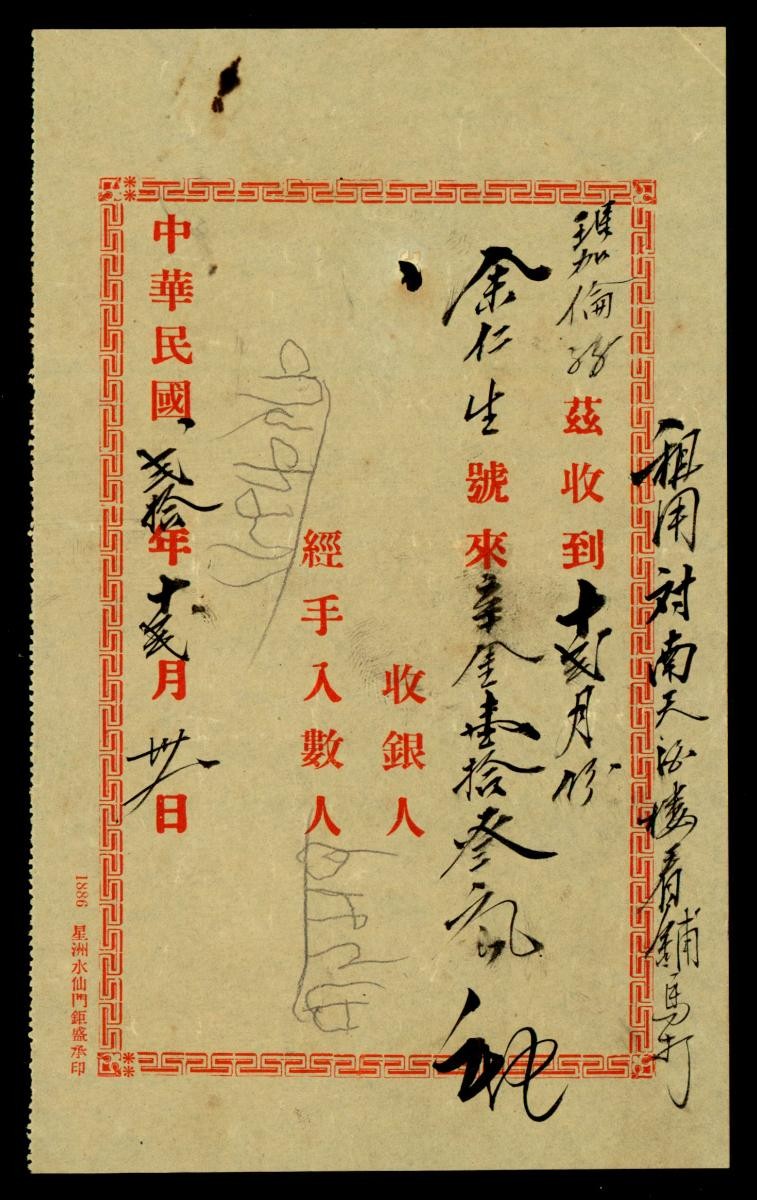 租用対南天酒楼看鋪馬打
加倫 茲收到十弍月份
余仁生號來辛金壹拾叁元
收銀人
經手入數人
中華民國弍拾年十弍月卅日
1886 星洲水仙門鉅盛承印